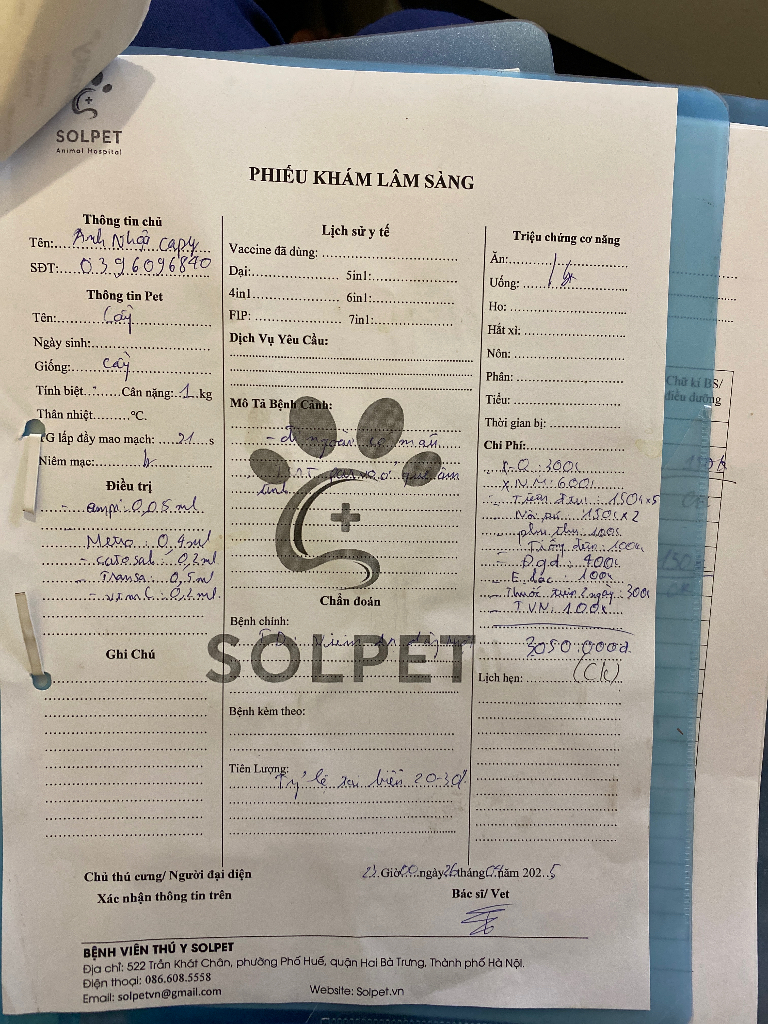 SOLPET
Animal Hospital
PHIẾU KHÁM LÂM SÀNG
Thông tin chủ
Tên: Anh Nhật Capy
SĐT: 0396096840
Thông tin Pet
Tên: Cầy
Ngày sinh:
Giống: Cầy
Tính biệt: Cân nặng: 1 kg
Thân nhiệt °C.
TG lấp đầy mao mạch: 21 s
Niêm mạc:
Điều trị
- ampi: 0,05 ml
Metro: 0,4 ml
- catosal: 0,2 ml
- Transa: 0,5 ml
- vtmC: 0,2 ml
Ghi Chú
Lịch sử y tế
Vaccine đã dùng:
Dại: 5in1:
4in1 6in1:
FIP: 7in1:
Dịch Vụ Yêu Cầu:
Mô Tả Bệnh Cảnh:
- đi ngoài có máu
Chẩn đoán
Bệnh chính:
Bệnh kèm theo:
Tiên Lượng:
Tỷ lệ tai biến 20-30%
Triệu chứng cơ năng
Ăn:
Uống:
Ho:
Hắt xì:
Nôn:
Phân:
Tiểu:
Thời gian bị:
Chi Phí:
X.Q: 300k
X.N.M: 600k
150k x 5
150k x 2
100k
100k
400k
100k
Thuốc 2 ngày: 300k
T.V.M: 100k
3050.000đ
(CK)
Lịch hẹn:
SOLPET
Chủ thú cưng/ Người đại diện
Xác nhận thông tin trên
23 Giờ 00 ngày 26 tháng 04 năm 2025
Bác sĩ/ Vet
BỆNH VIỆN THÚ Y SOLPET
Địa chỉ: 522 Trần Khát Chân, phường Phố Huế, quận Hai Bà Trưng, Thành phố Hà Nội.
Điện thoại: 086.608.5558
Email: solpetvn@gmail.com Website: Solpet.vn
Chữ kí BS/
điều dưỡng